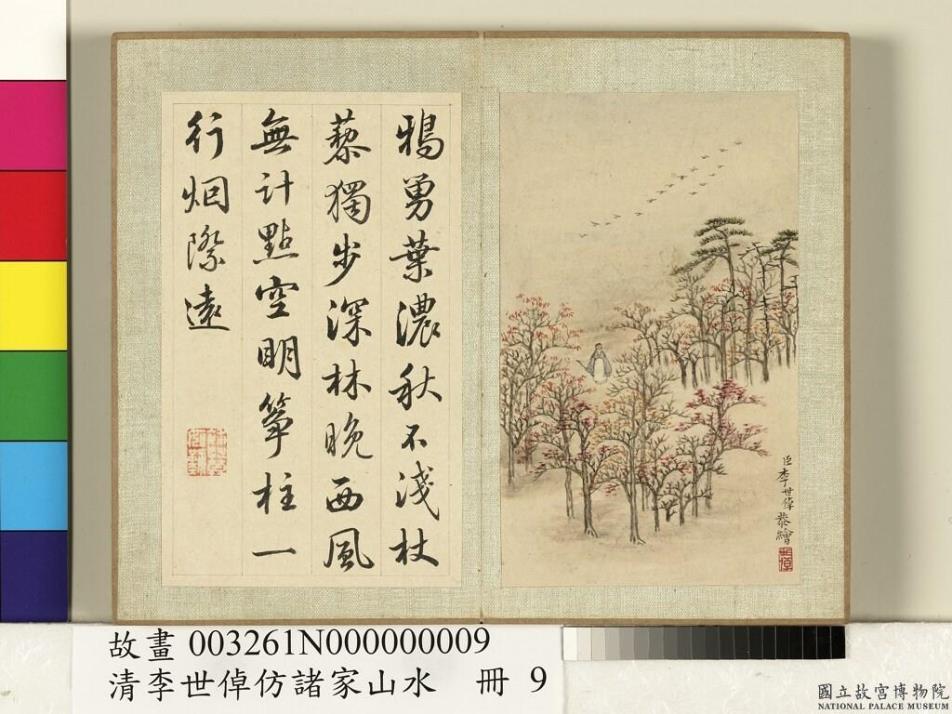 鴉舅葉濃秋不淺杖
藜獨步深林晚西風
無計點空明箏柱一
行烟際遠
臣李世倬恭繪
故畫 003261N000000009
清李世倬仿諸家山水 冊 9
國立故宮博物院
NATIONAL PALACE MUSEUM